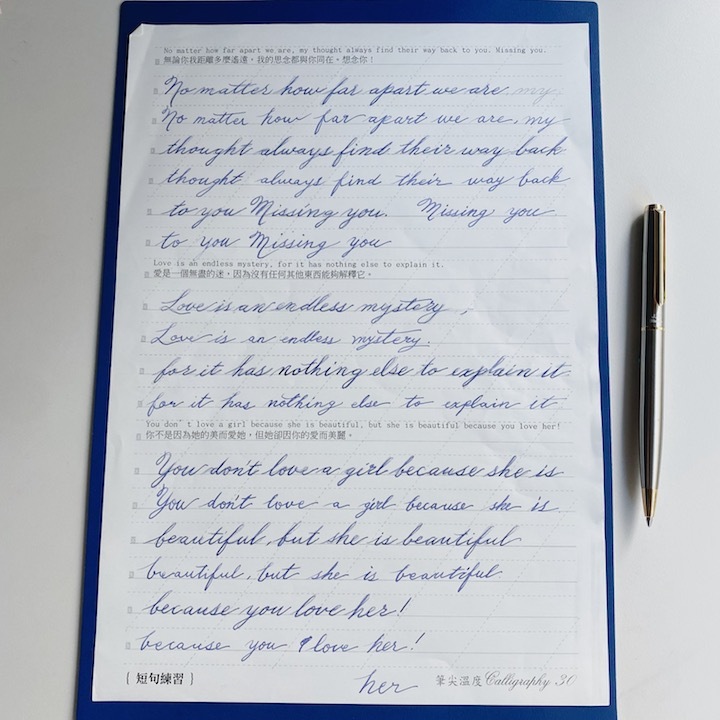 No matter how far apart we are, my thought always find their way back to you. Missing you.
無論你我距離多麼遙遠，我的思念都與你同在。想念你！
No matter how far apart we are, my
No matter how far apart we are, my
thought always find their way back
thought always find their way back
to you Missing you. Missing you
to you Missing you
Love is an endless mystery, for it has nothing else to explain it.
愛是一個無盡的迷，因為沒有任何其他東西能夠解釋它。
Love is an endless mystery,
Love is an endless mystery.
for it has nothing else to explain it
for it has nothing else to explain it
You don't love a girl because she is beautiful, but she is beautiful because you love her!
你不是因為她的美而愛她，但她卻因你的愛而美麗。
You don't love a girl because she is
You don't love a girl because she is
beautiful, but she is beautiful
beautiful, but she is beautiful
because you love her!
because you love her!
her
{ 短句練習 } 筆尖溫度 Calligraphy 30